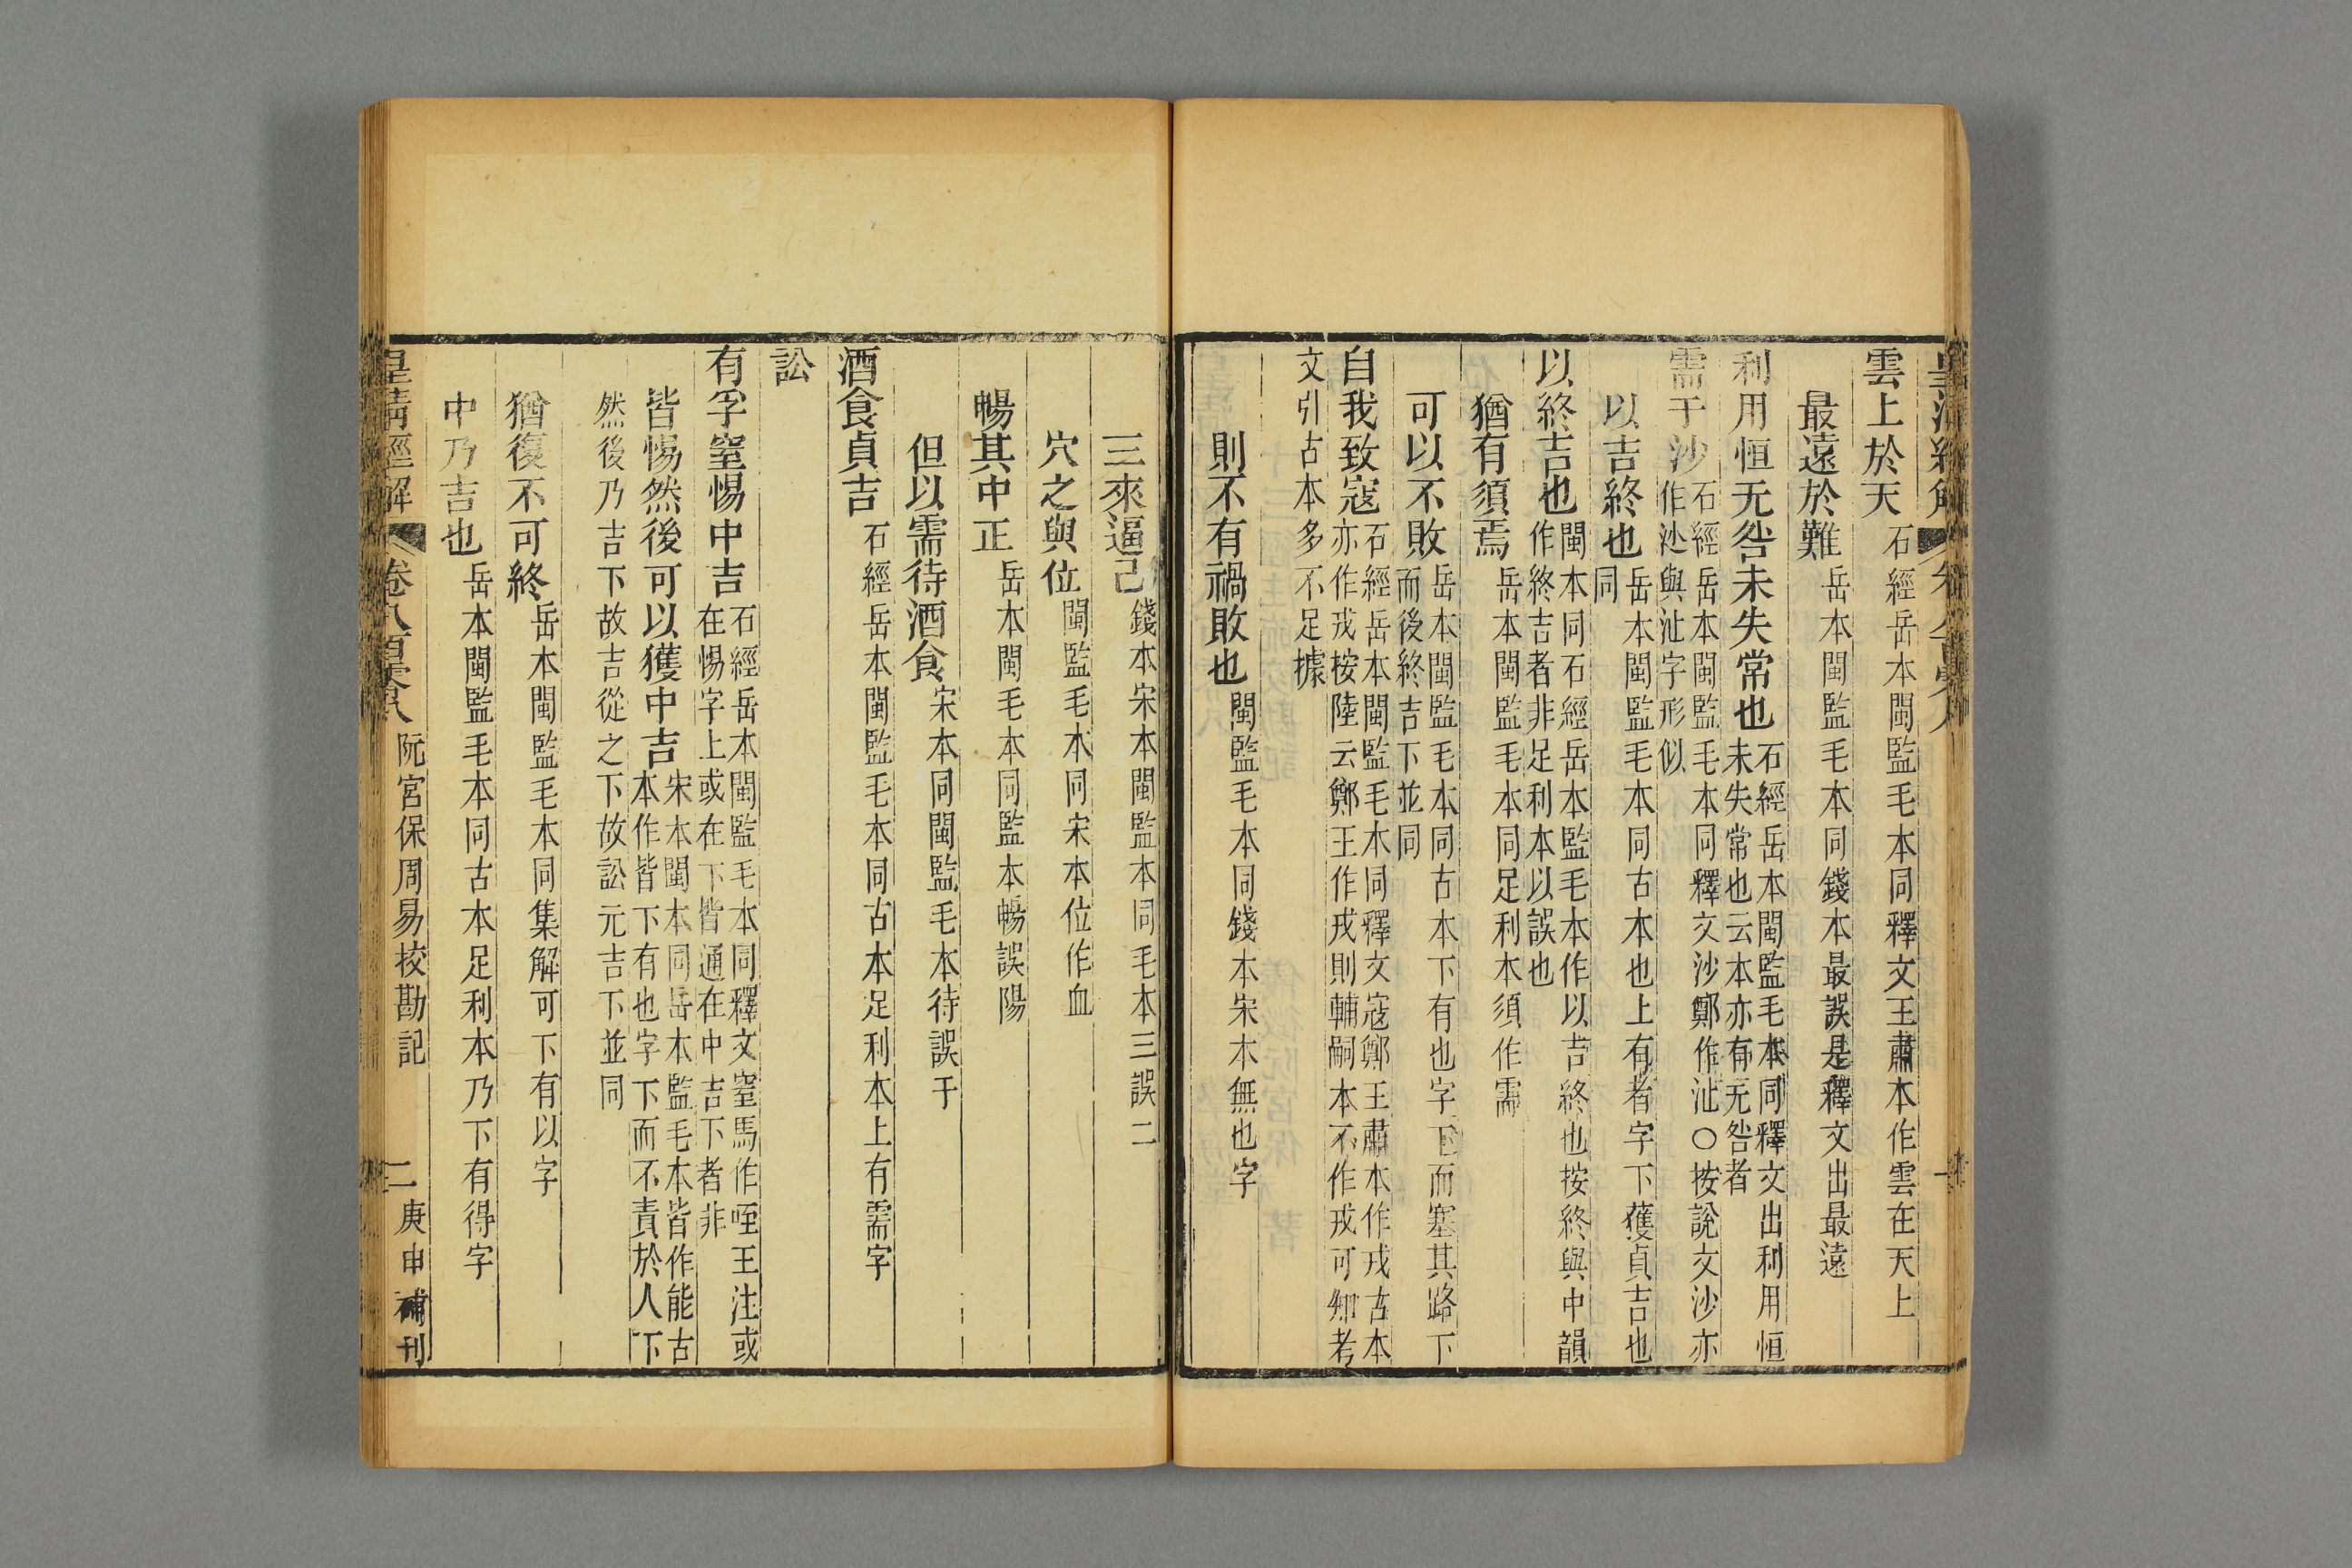 雲上於天石經岳本閩監毛本同釋文王肅本作雲在天上
最遠於難岳本閩監毛本同錢本最誤是釋文出最遠
利用恒无咎未失常也石經岳本閩監毛本同釋文出利用恒未失常也云本亦有无咎者
需于沙石經岳本閩監毛本同釋文沙鄭作沚○按說文沙亦作沙與沚字形似
以吉終也岳本閩監毛本同古本也上有者字下獲貞吉也同
以終吉也閩本同石經岳本監毛本作以吉終也按終與中韻作終吉者非足利本以誤也
猶有須焉岳本閩監毛本同足利本須作需
可以不敗岳本閩監毛本同古本下有也字下而塞其路下而後終吉下並同
自我致寇石經岳本閩監毛本同釋文寇鄭王肅本作戎古本亦作戎按陸云鄭王作戎則輔嗣本不作戎可知考
文引古本多不足據
則不有禍敗也閩監毛本同錢本宋本無也字
三來逼己錢本宋本閩監本同毛本三誤二
穴之與位閩監毛本同宋本位作血
暢其中正岳本閩毛本同監本暢誤陽
但以需待酒食宋本同閩監毛本待誤于
酒食貞吉石經岳本閩監毛本同古本足利本上有需字
訟
有孚窒惕中吉石經岳本閩監毛本同釋文窒馬作咥王注或在惕字上或在下皆通在中吉下者非
皆惕然後可以獲中吉宋本閩本同岳本監毛本皆作能古本作皆下有也字下而不責於人下
然後乃吉下故吉從之下故訟元吉下並同
猶復不可終岳本閩監毛本同集解可下有以字
中乃吉也岳本閩監毛本同古本足利本乃下有得字
皇清經解 卷八百零八 阮宮保周易挍勘記 二 庚申補刊